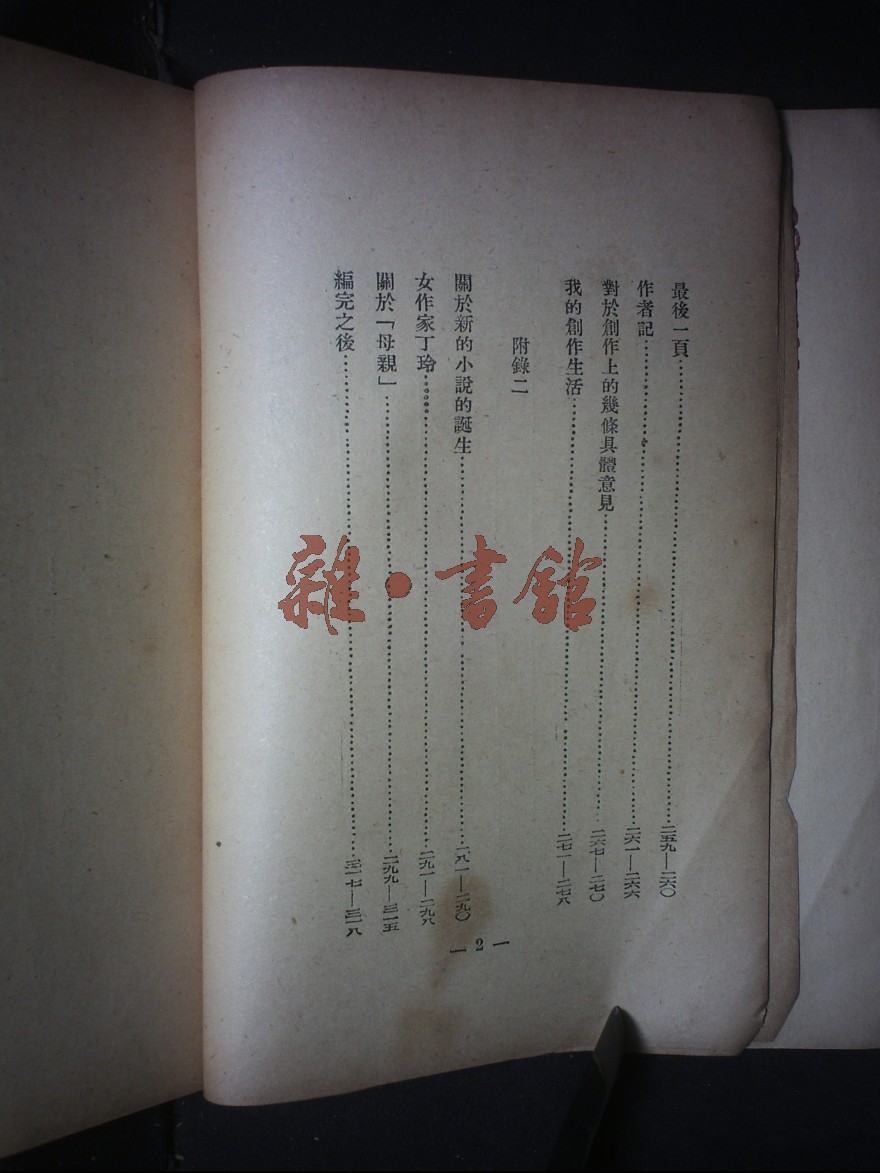 最後一頁……二五九—二六〇
作者記……二六一—二六六
對於創作上的幾條具體意見……二六七—二七〇
我的創作生活……二七一—二七八
附錄二
關於新的小說的誕生……二八一—二九〇
女作家丁玲……二九一—二九八
關於「母親」……二九九—三一五
編完之後……三一七—三一八
— 2 —
雜•書館